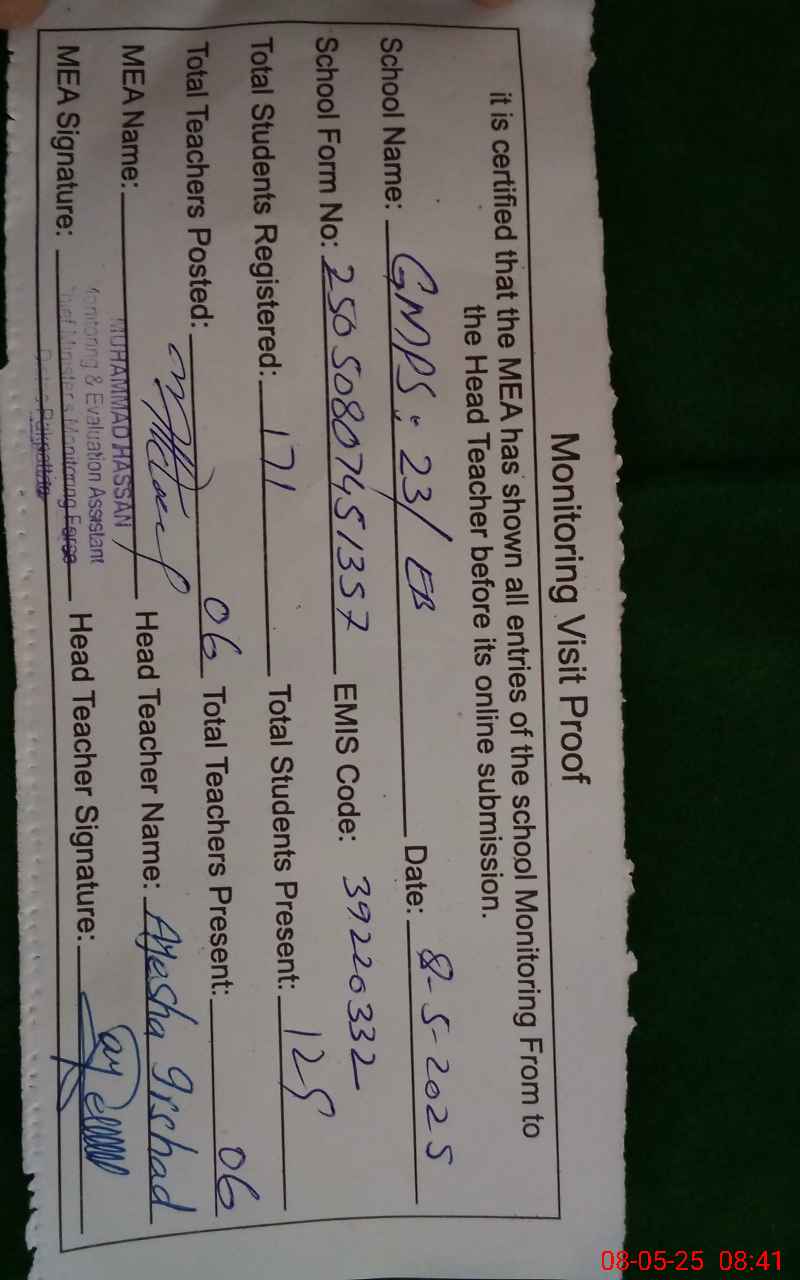 Monitoring Visit Proof
it is certified that the MEA has shown all entries of the school Monitoring From to
the Head Teacher before its online submission.
School Name: GMPS, 23/EB Date: 8-5-2025
School Form No: 2505080747451357 EMIS Code: 39220332
Total Students Registered: 171 Total Students Present: 125
Total Teachers Posted: 06 Total Teachers Present: 06
MEA Name: Head Teacher Name: Ayesha Irshad
MUHAMMAD HASSAN
Monitoring & Evaluation Assistant
Chief Minister's Monitoring Force
MEA Signature: Head Teacher Signature:
08-05-25 08:41